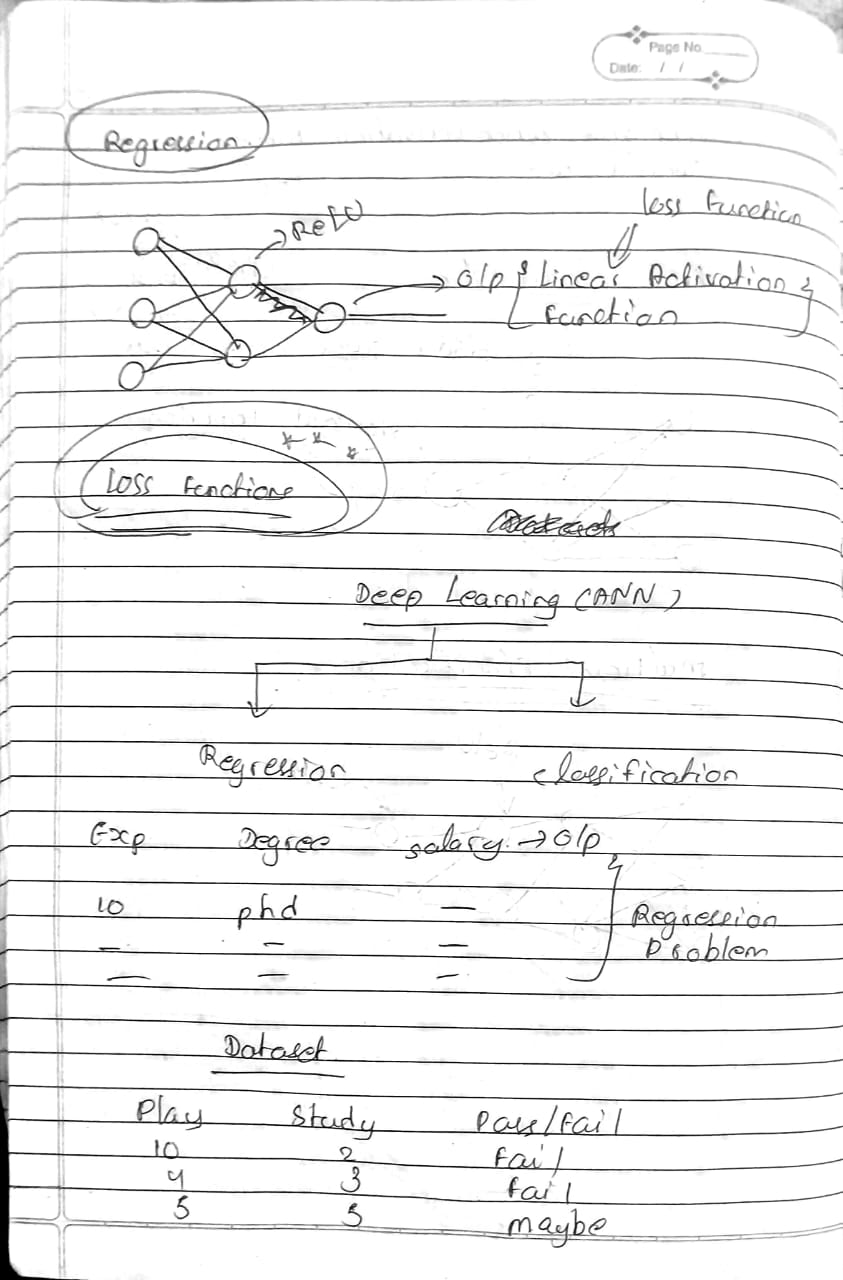 Page No.
Date: / /
Regression
ReLU
loss function
O/p { Linear Activation }
function
Loss functions
Deep Learning (ANN)
Regression classification
Exp Degree salary → O/p
10 phd —
— — —
— — —
Regression
Problem
Dataset
Play Study Pass/fail
10 2 fail
4 3 fail
5 5 maybe